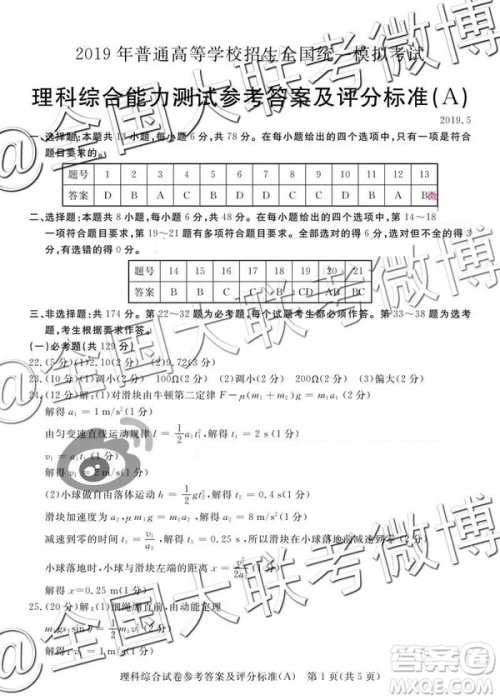 2019年普通高等学校招生全国统一模拟考试
理科综合能力测试参考答案及评分标准(A)
2019.5
一、选择题:本题共13小题,每小题6分,共78分。在每小题给出的四个选项中,只有一项是符合
题目要求的。
题号 1 2 3 4 5 6 7 8 9 10 11 12 13
答案 D B A C D C A B C A D A B
二、选择题:本题共8小题,每小题6分,共48分。在每小题给出的四个选项中,第14~18
一项符合题目要求,第19~21题有多项符合题目要求。全部选对的得6分,选对但不全的得3
分,有选错的得0分。
题号 14 15 16 17 18 19 20 21
答案 B B C C D CD AB AC
三、非选择题:共174分。第22~32题为必考题,每个试题考生都必须作答。第33~38题为选考
题,考生根据要求作答。
(一)必考题(共129分)
22.(5分)(1)2.10(2分) (2)9.72(3分)
23.(10分)(1)调小(2分) 100Ω(2分) (2)调小(2分) 200Ω(2分) (3)偏大(2分)
24.(12分)解:(1)对滑块由牛顿第二定律 F-μ(m₁+m₂)g=m₁a₁(2分)
解得 a₁=1 m/s²(1分)
由匀变速直线运动规律 l=1/2a₁t₁² 解得 t₁=2 s(1分)
v₁=a₁t₁(1分)
解得 v₁=2 m/s(1分)
(2)小球做自由落体运动 h=1/2gt₂² 解得 t₂=0.4 s(1分)
滑块加速度大小 a₂,μm₁g=m₁a₂ 解得 a₂=8 m/s²(1分)
减速到零的时间 t₃=v₁/a₂ 解得 t₃=0.25 s,所以滑块在小球落地前减速到零(1分)
小球落地时,小球与滑块左端的距离 x=v₁²/2a₂(2分)
解得 x=0.25 m(1分)
25.(20分)解:(1)细绳绷直前,由动能定理
(2分)
理科综合试卷参考答案及评分标准(A) 第1页(共5页)
@全国大联考微博
@全国大联考微博
@全国大联考微博